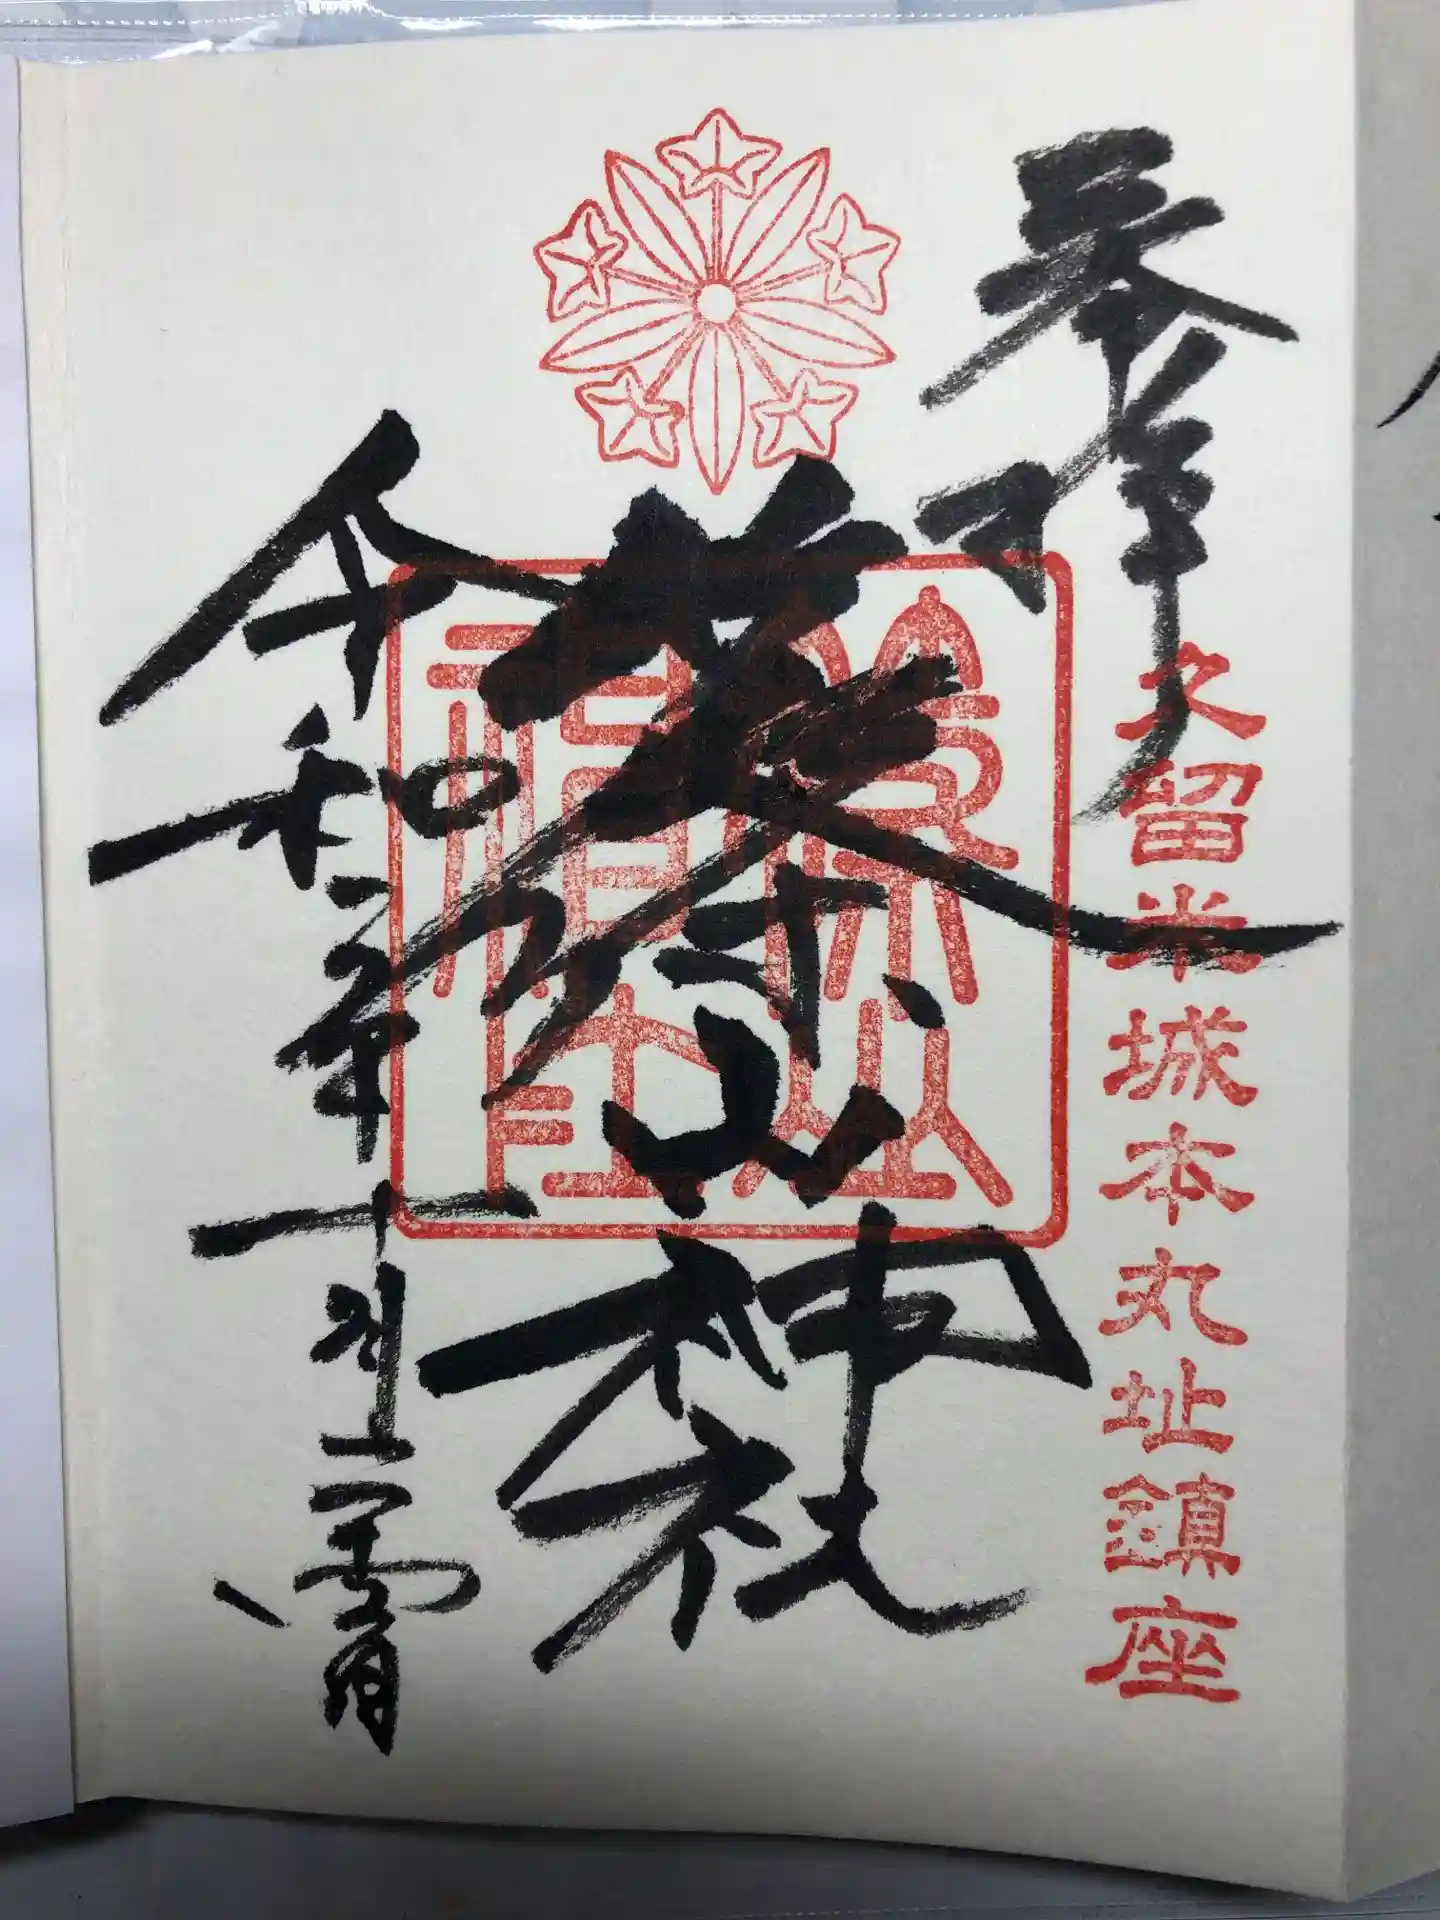 奉拝
久留米城本丸址鎮座
篠山神社
篠山
神社
令和 年十